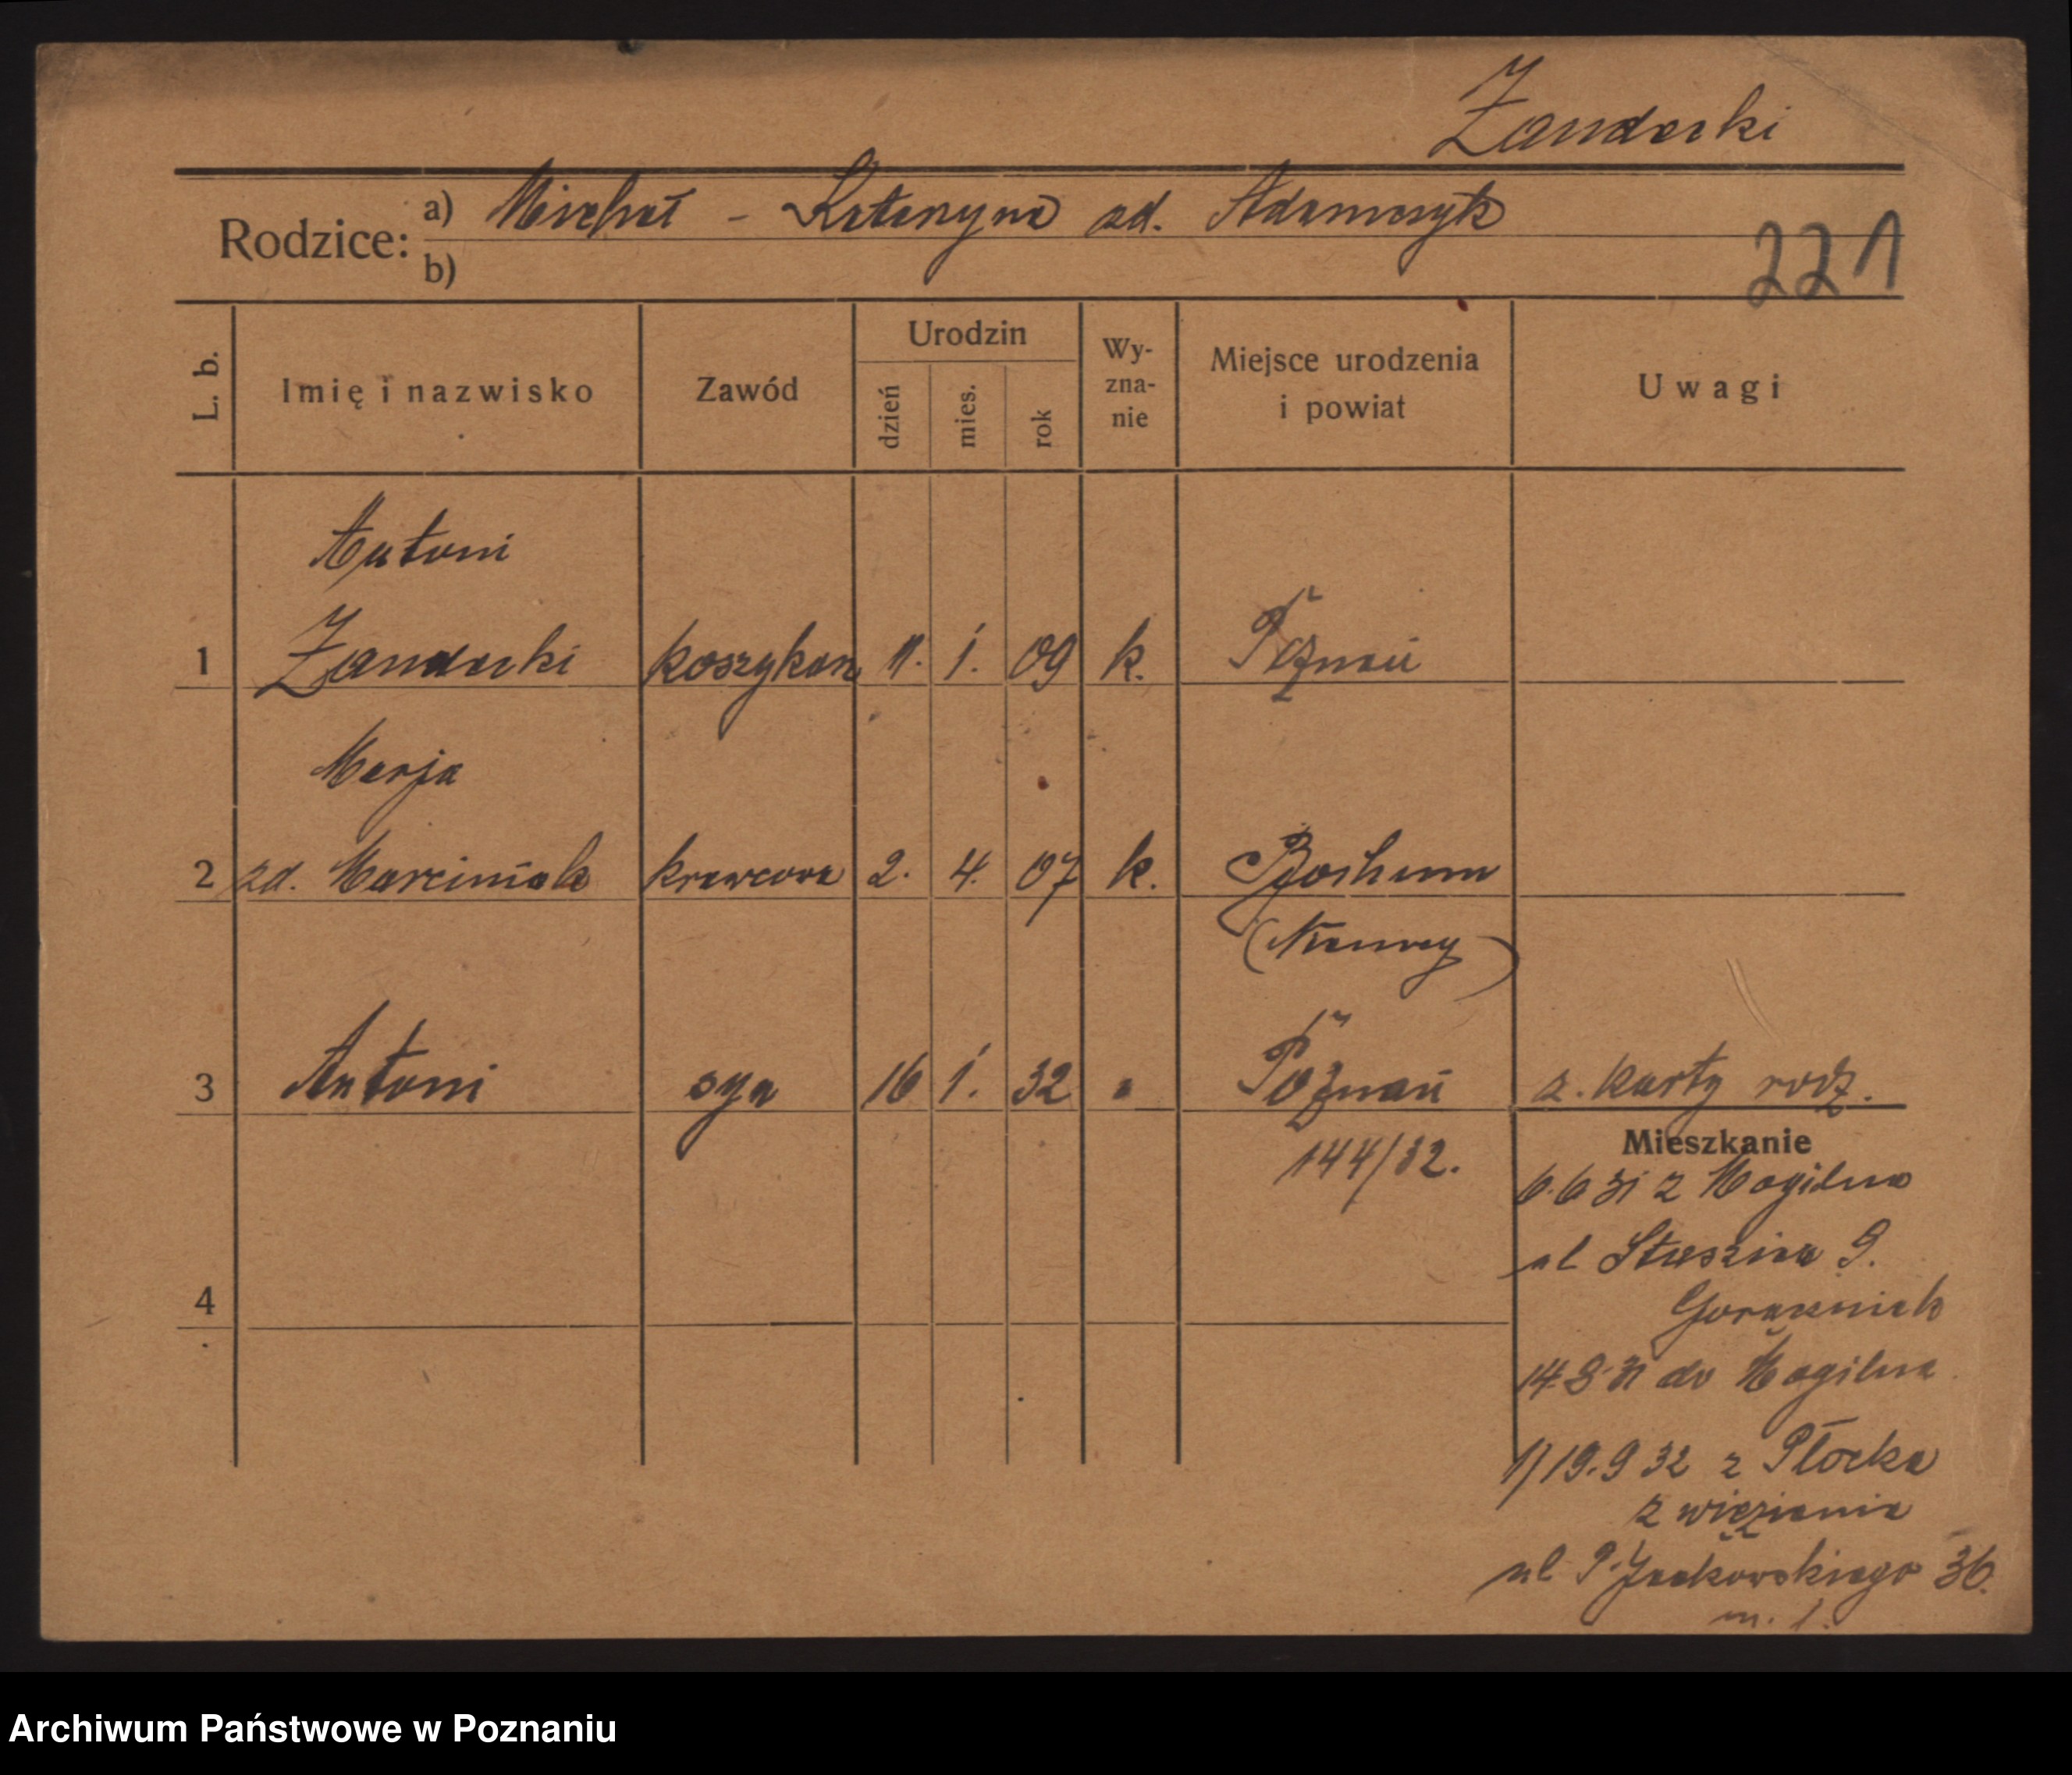 Żandecki
Rodzice: a) Michał - Katarzyna zd. Adamczyk
b)
221
L. b. Imię i nazwisko Zawód Urodzin dzień mies. rok Wy-zna-nie Miejsce urodzenia i powiat Uwagi
Antoni
1 Żandecki koszykarz 11. 1. 09 k. Poznań
Marja
2 zd. Marciniak krawcowa 2. 4. 07 k. Bochum
(Niemcy)
3 Antoni syn 16 1. 32 " Poznań z. karty rodz.
144/32.
Mieszkanie
6.6 31 z Mogilna
ul 9.
4
14.8 31 do Mogilna
1) 19.9 32 z Płocka
z więzienia
ul P. Jackowskiego 36.
m. 1.
Archiwum Państwowe w Poznaniu